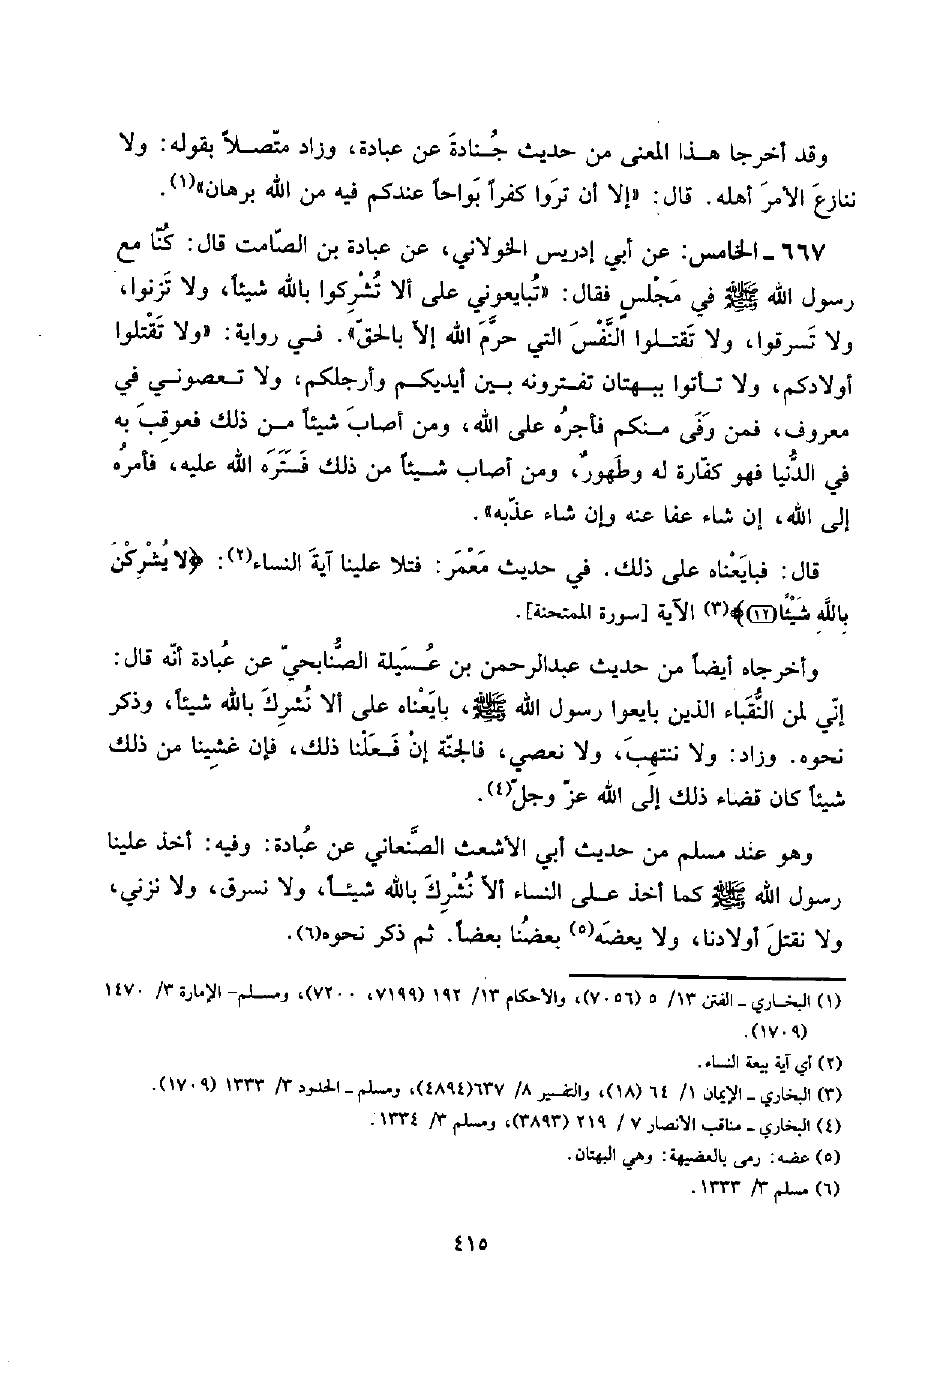 وقد أخرجا هذا المعنى من حديث جُنادةَ عن عبادة، وزاد متّصلاً بقوله: ولا
ننازعَ الأمرَ أهله. قال: «إلا أن تَرَوا كفراً بَواحاً عندكم فيه من الله برهان»(١).
٦٦٧ ـ الخامس: عن أبي إدريس الخولاني، عن عبادة بن الصّامت قال: كُنّا مع
رسول الله ﷺ في مَجْلس فقال: «تُبايعوني على ألا تُشْرِكوا بالله شيئاً، ولا تَزنوا،
ولا تَسرقوا، ولا تَقتلوا النَّفْسَ التي حرَّمَ الله إلاّ بالحقّ». في رواية: «ولا تَقْتلوا
أولادكم، ولا تأتوا ببهتان تفترونه بين أيديكم وأرجلكم، ولا تعصوني في
معروف، فمن وَفَى منكم فأجرهُ على الله، ومن أصابَ شيئاً من ذلك فعوقِبَ به
في الدُّنيا فهو كفّارة له وطَهورٌ، ومن أصاب شيئاً من ذلك فَسَتَرَه الله عليه، فأمرُه
إلى الله، إن شاء عفا عنه وإن شاء عذّبه».
قال: فبايَعْناه على ذلك. في حديث مَعْمَر: فتلا علينا آيةَ النساء(٢): ﴿لا يُشْرِكْنَ
بِاللَّهِ شَيْئًا (١٢)﴾(٣) الآية [سورة الممتحنة].
وأخرجاه أيضاً من حديث عبدالرحمن بن عُسَيلة الصُّنابحيّ عن عُبادة أنّه قال:
إنّي لمن النُّقَباء الذين بايعوا رسول الله ﷺ، بايَعْناه على ألا نُشرِكَ بالله شيئاً، وذكر
نحوه. وزاد: ولا ننتهِبَ، ولا نعصي، فالجنّة إنْ فَعَلْنا ذلك، فإن غشينا من ذلك
شيئاً كان قضاء ذلك إلى الله عزّ وجلّ(٤).
وهو عند مسلم من حديث أبي الأشعث الصَّنعاني عن عُبادة: وفيه: أخذ علينا
رسول الله ﷺ كما أخذ على النساء ألاّ نُشْرِكَ بالله شيئاً، ولا نسرق، ولا نزني،
ولا نقتلَ أولادنا، ولا يعضَه(٥) بعضُنا بعضاً. ثم ذكر نحوه(٦).
(١) البخاري ـ الفتن ١٣/ ٥ (٧٠٥٦)، والأحكام ١٣/ ١٩٢ (٧١٩٩، ٧٢٠٠)، ومسلم- الإمارة ٣/ ١٤٧٠
(١٧٠٩).
(٢) أي آية بيعة النساء.
(٣) البخاري ـ الإيمان ١/ ٦٤ (١٨)، والتفسير ٨/ ٦٣٧(٤٨٩٤)، ومسلم ـ الحدود ٣/ ١٣٣٣ (١٧٠٩).
(٤) البخاري ـ مناقب الأنصار ٧ / ٢١٩ (٣٨٩٣)، ومسلم ٣/ ١٣٣٤.
(٥) عضه: رمى بالعضيهة: وهي البهتان.
(٦) مسلم ٣/ ١٣٣٣.
٤١٥